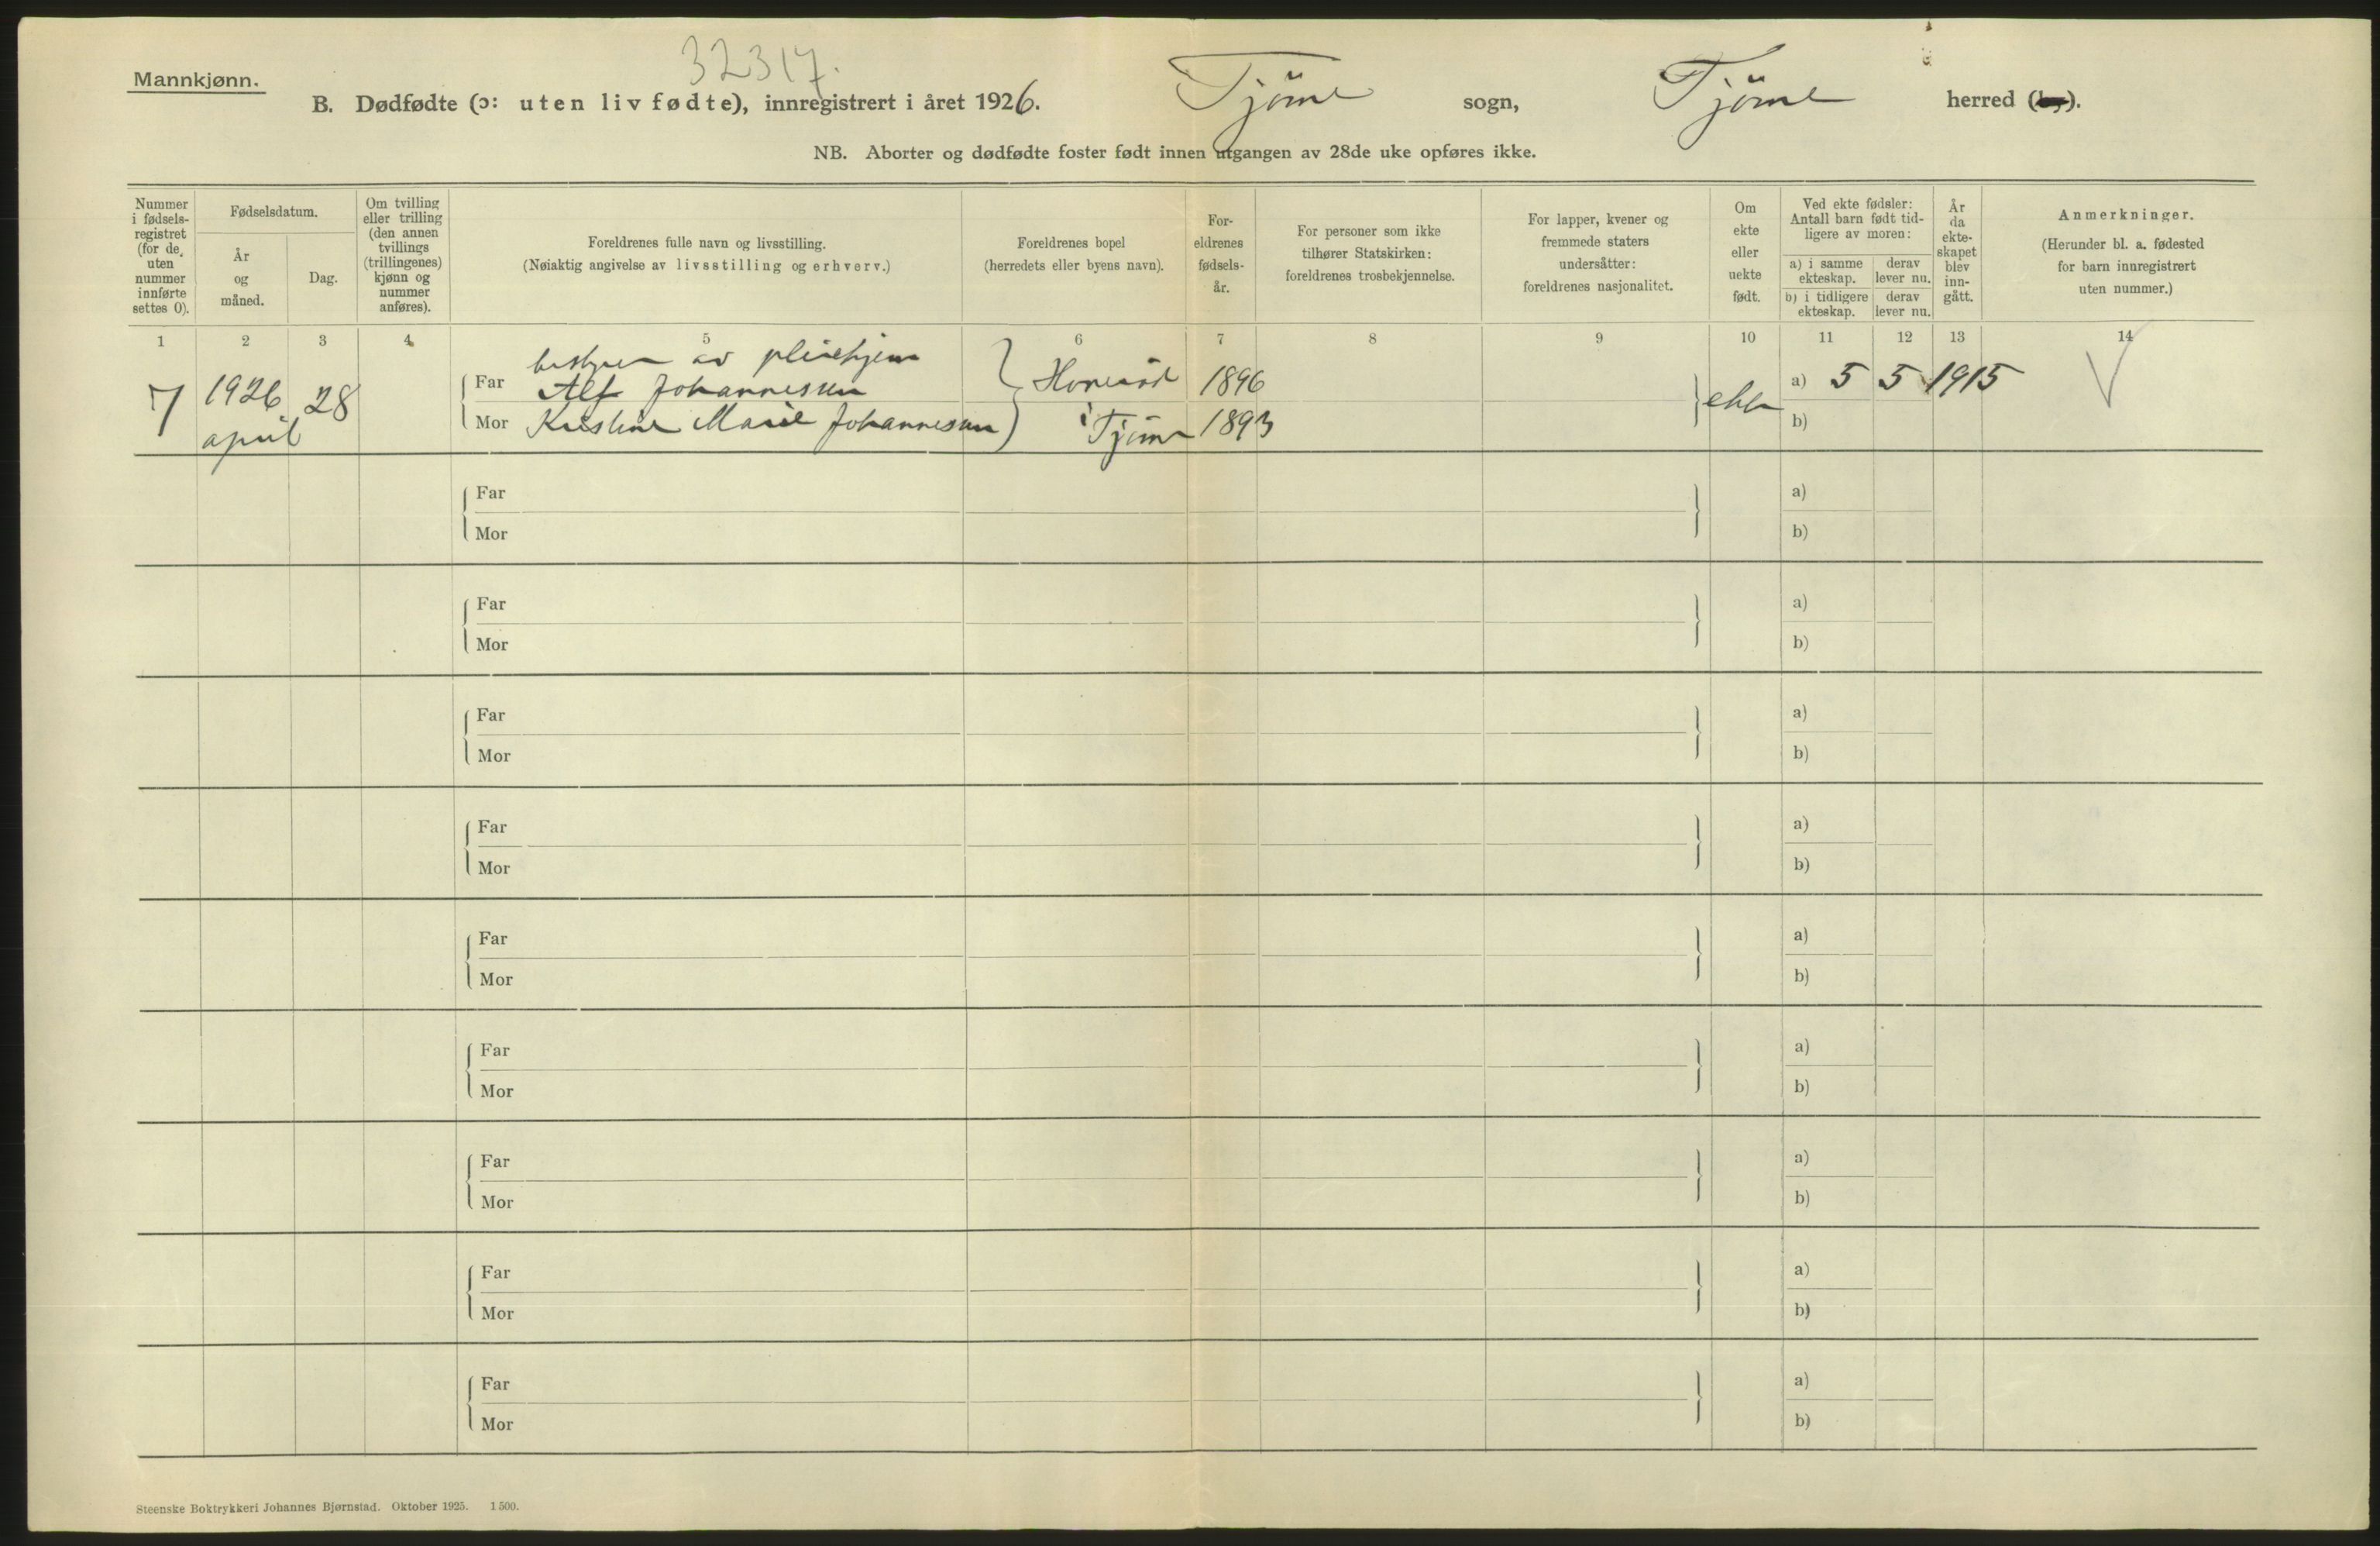 32317.
Mannkjønn.
B. Dødfødte (ɔ: uten liv fødte), innregistrert i året 1926. Tjöme sogn, Tjöme herred
NB. Aborter og dødfødte foster født innen utgangen av 28de uke opføres ikke.
Nummer i fødselsregistret (for de uten nummer innførte settes 0).
Fødselsdatum.
År og måned.
Dag.
Om tvilling eller trilling (den annen tvillings (trillingenes) kjønn og nummer anføres).
Foreldrenes fulle navn og livsstilling.
(Nøiaktig angivelse av livsstilling og erhverv.)
Foreldrenes bopel
(herredets eller byens navn).
Foreldrenes fødselsår.
For personer som ikke tilhører Statskirken: foreldrenes trosbekjennelse.
For lapper, kvener og fremmede staters undersåtter: foreldrenes nasjonalitet.
Om ekte eller uekte født.
Ved ekte fødsler: Antall barn født tidligere av moren:
a) i samme ekteskap.
derav lever nu.
b) i tidligere ekteskap.
derav lever nu.
År da ekteskapet blev inngått.
Anmerkninger.
(Herunder bl. a. fødested for barn innregistrert uten nummer.)
1 2 3 4 5 6 7 8 9 10 11 12 13 14
bestyrer av pleiehjem
7 1926 28 Far Alf Johannessen 1896 ekte a) 5 5 1915
april Mor Kristine Marie Johannessen i Tjöme 1893 b)
Far a)
Mor b)
Far a)
Mor b)
Far a)
Mor b)
Far a)
Mor b)
Far a)
Mor b)
Far a)
Mor b)
Far a)
Mor b)
Far a)
Mor b)
Far a)
Mor b)
Steenske Boktrykkeri Johannes Bjørnstad. Oktober 1925. 1500.